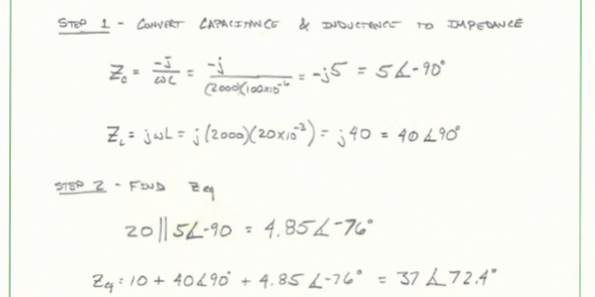 STEP 1 - CONVERT CAPACITANCE & INDUCTENCE TO IMPEDANCE
Zc = -j/ωC = -j/(2000)(100x10^-6 = -j5 = 5∠-90°
ZL = jωL = j(2000)(20x10^-3) = j40 = 40∠90°
STEP 2 - FIND Zeq
20||5∠-90 = 4.85∠-76°
Zeq = 10 + 40∠90° + 4.85∠-76° = 37∠72.4°